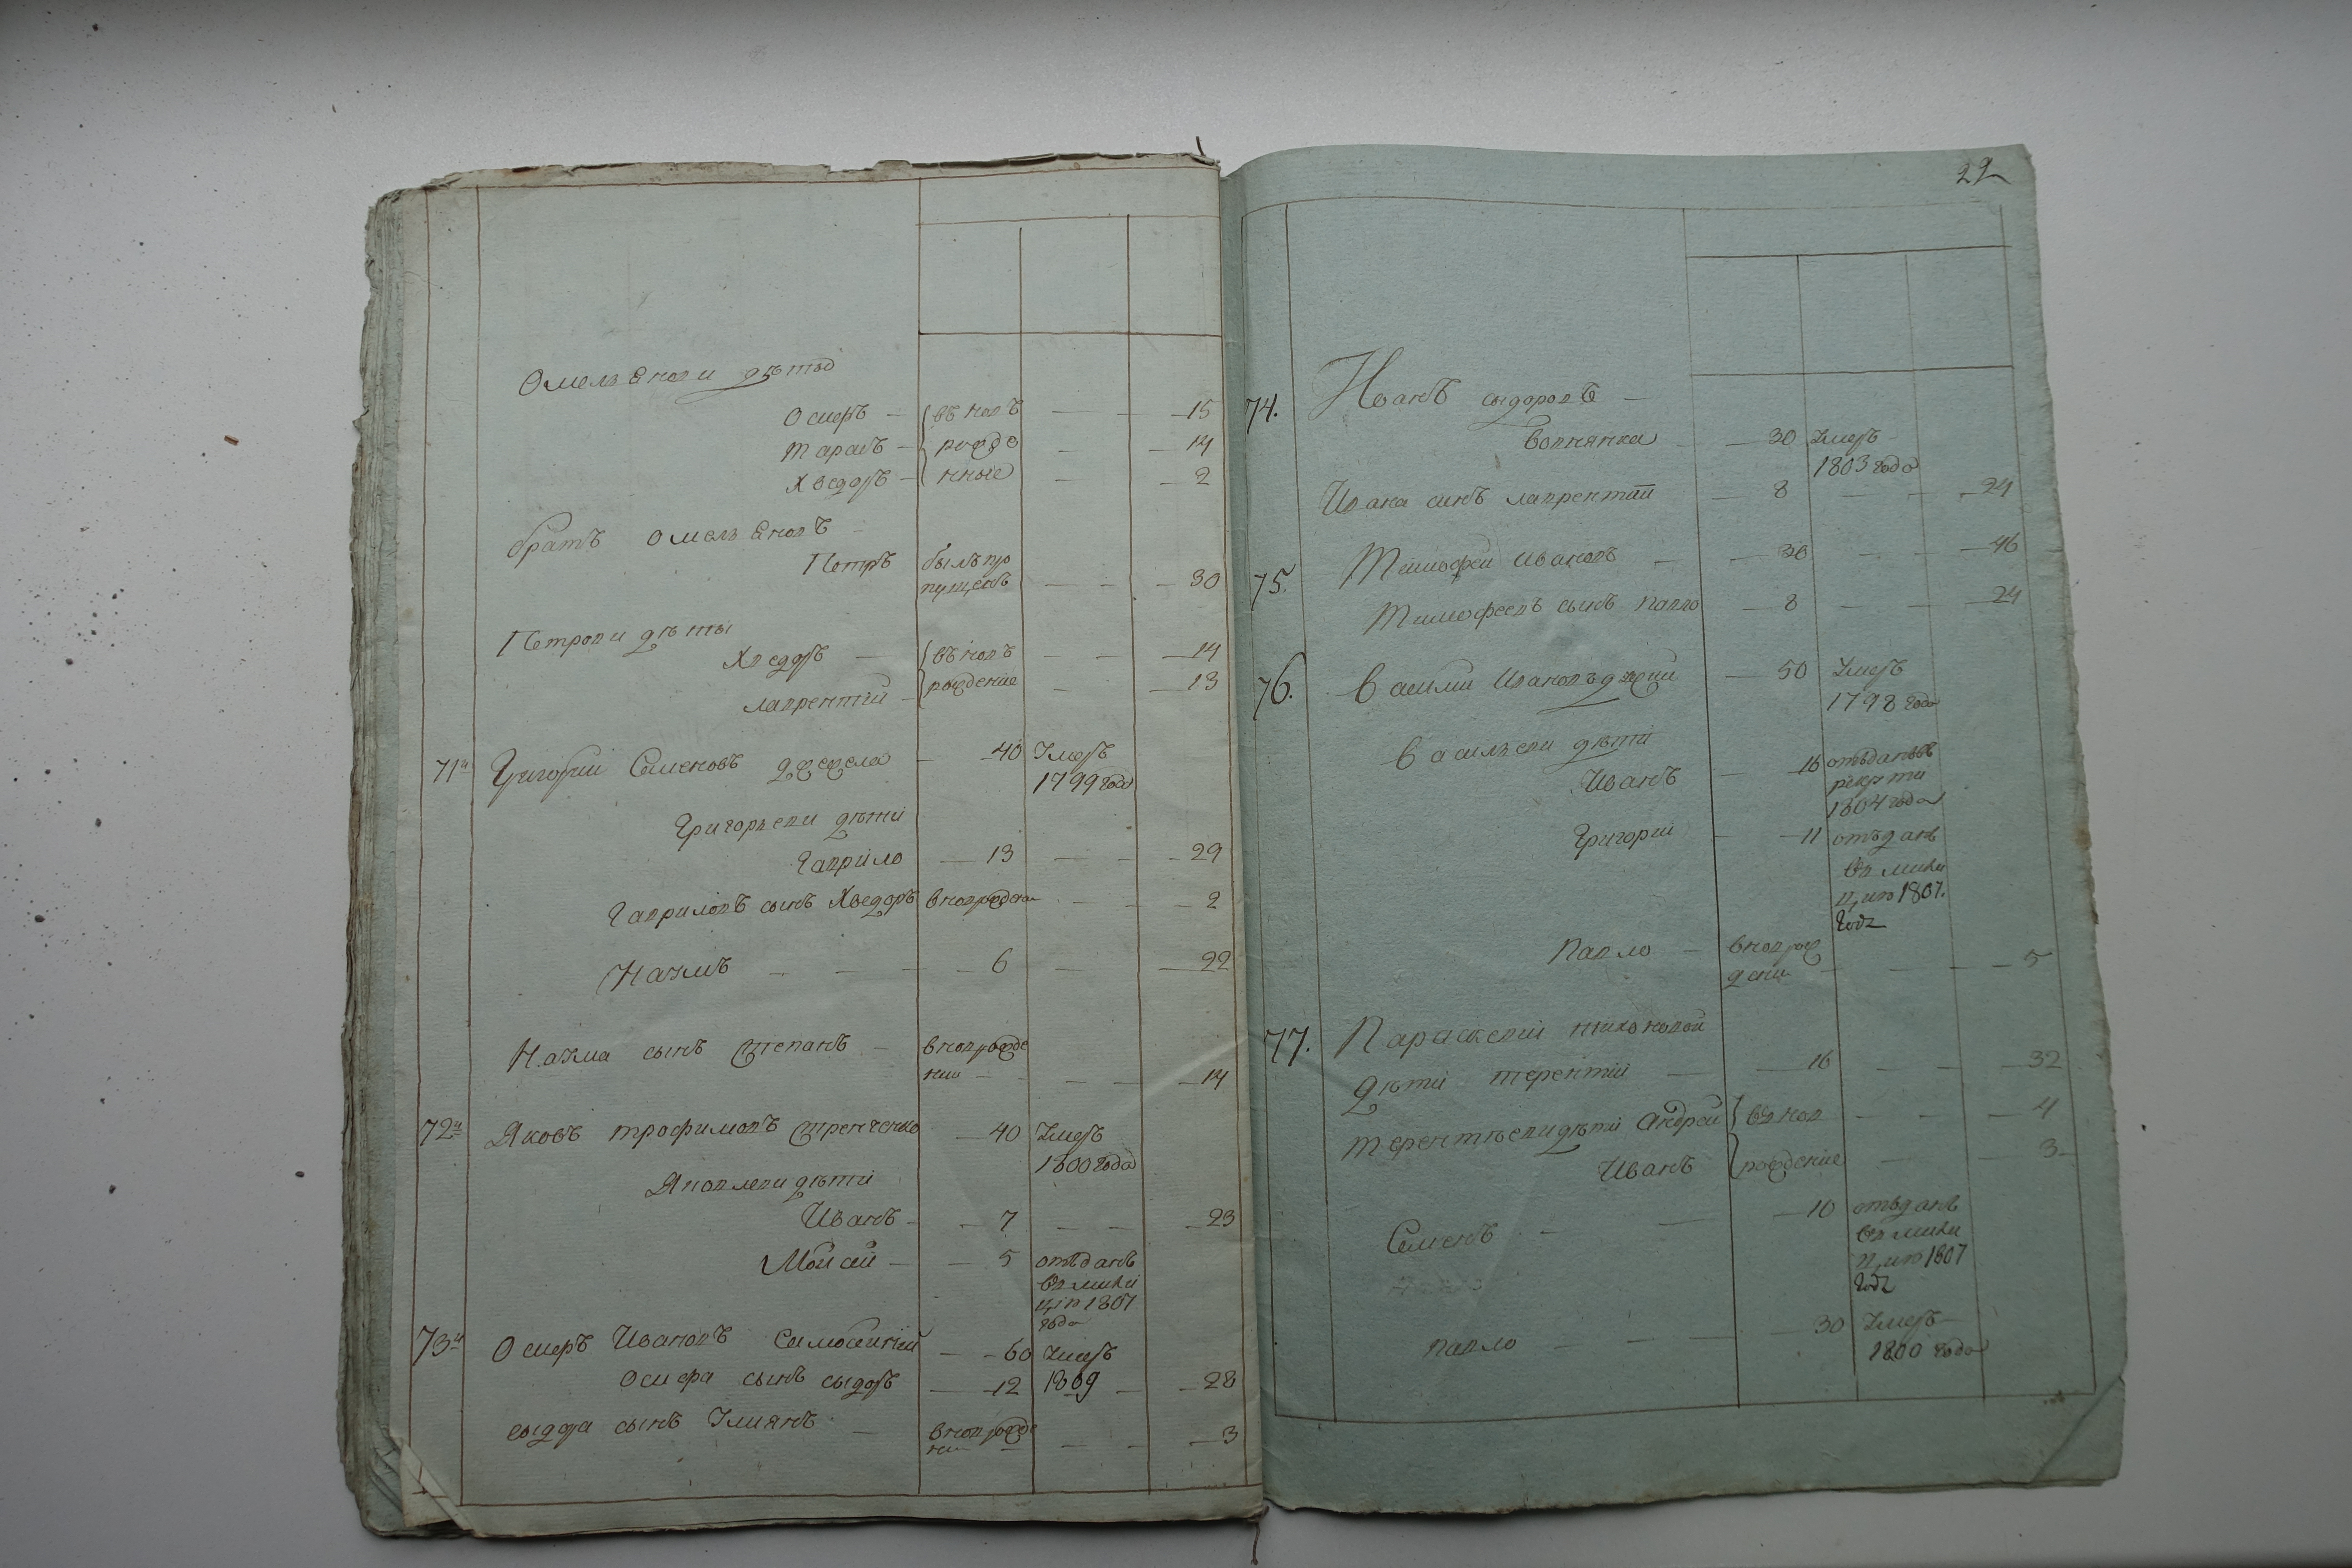 Омельянови дѣти
Осипъ — въ новъ — — 15
Тарасъ — рожде — — 14
Хведоръ — нные — — 2
братъ Омельяновъ —
Петръ былъ про
пущенъ — — 30
Петрови дѣты
Хведоръ — въ новъ — — 14
лаврентій — рождение — — 13
71й Григорий Семеновъ — 40 Умеръ
1799 года
Григорьеви дѣти
Гаврило — 13 — — 29
Гавриловъ сынъ Хведоръ вновъ рожден — — 2
Наумъ — — — 6 — — 22
Наума сынъ Степанъ — вновъ рожде
нии — — — 14
72й Яковъ трофимовъ — 40 Умеръ
1800 года
Яковлеви дѣти
Иванъ — — 7 — — 23
Мойсей — — 5 отъданъ
въ мили
цiю 1807
года
73й Осипъ Ивановъ — — 60 Умеръ
Осипа сынъ сыдоръ — 12 1809 — — 28
сыдора сынъ Улиянъ — вновъ рожде
нии — — — 3
22
74. Иванъ сыдоровъ —
Вовнянка — — 30 Умеръ —
1803 года
Ивана синъ лаврентій — 8 — — 24
75. Тимофей Ивановъ — — 30 — — 46
Тимофеевъ сынъ павло — 8 — — 24
76. Василий Ивановъ — 50 Умеръ
1798 года
Васильеви дѣти
Иванъ — 16 отъданъ въ
рекруты
1804 года
Григорій — — 11 отъданъ
въ мили
цию 1807.
года
Павло — вновъ рож
дени — — — 5
77. Параскевіи тихоновой
дѣти терентій — — 16 — — 32
терентъеви дѣти Андрей въ нов — — 4
Иванъ рождение — — 3
Семенъ — — — 10 отъданъ
въ мили
цию 1807
года
павло — — — 30 Умеръ —
1800 года